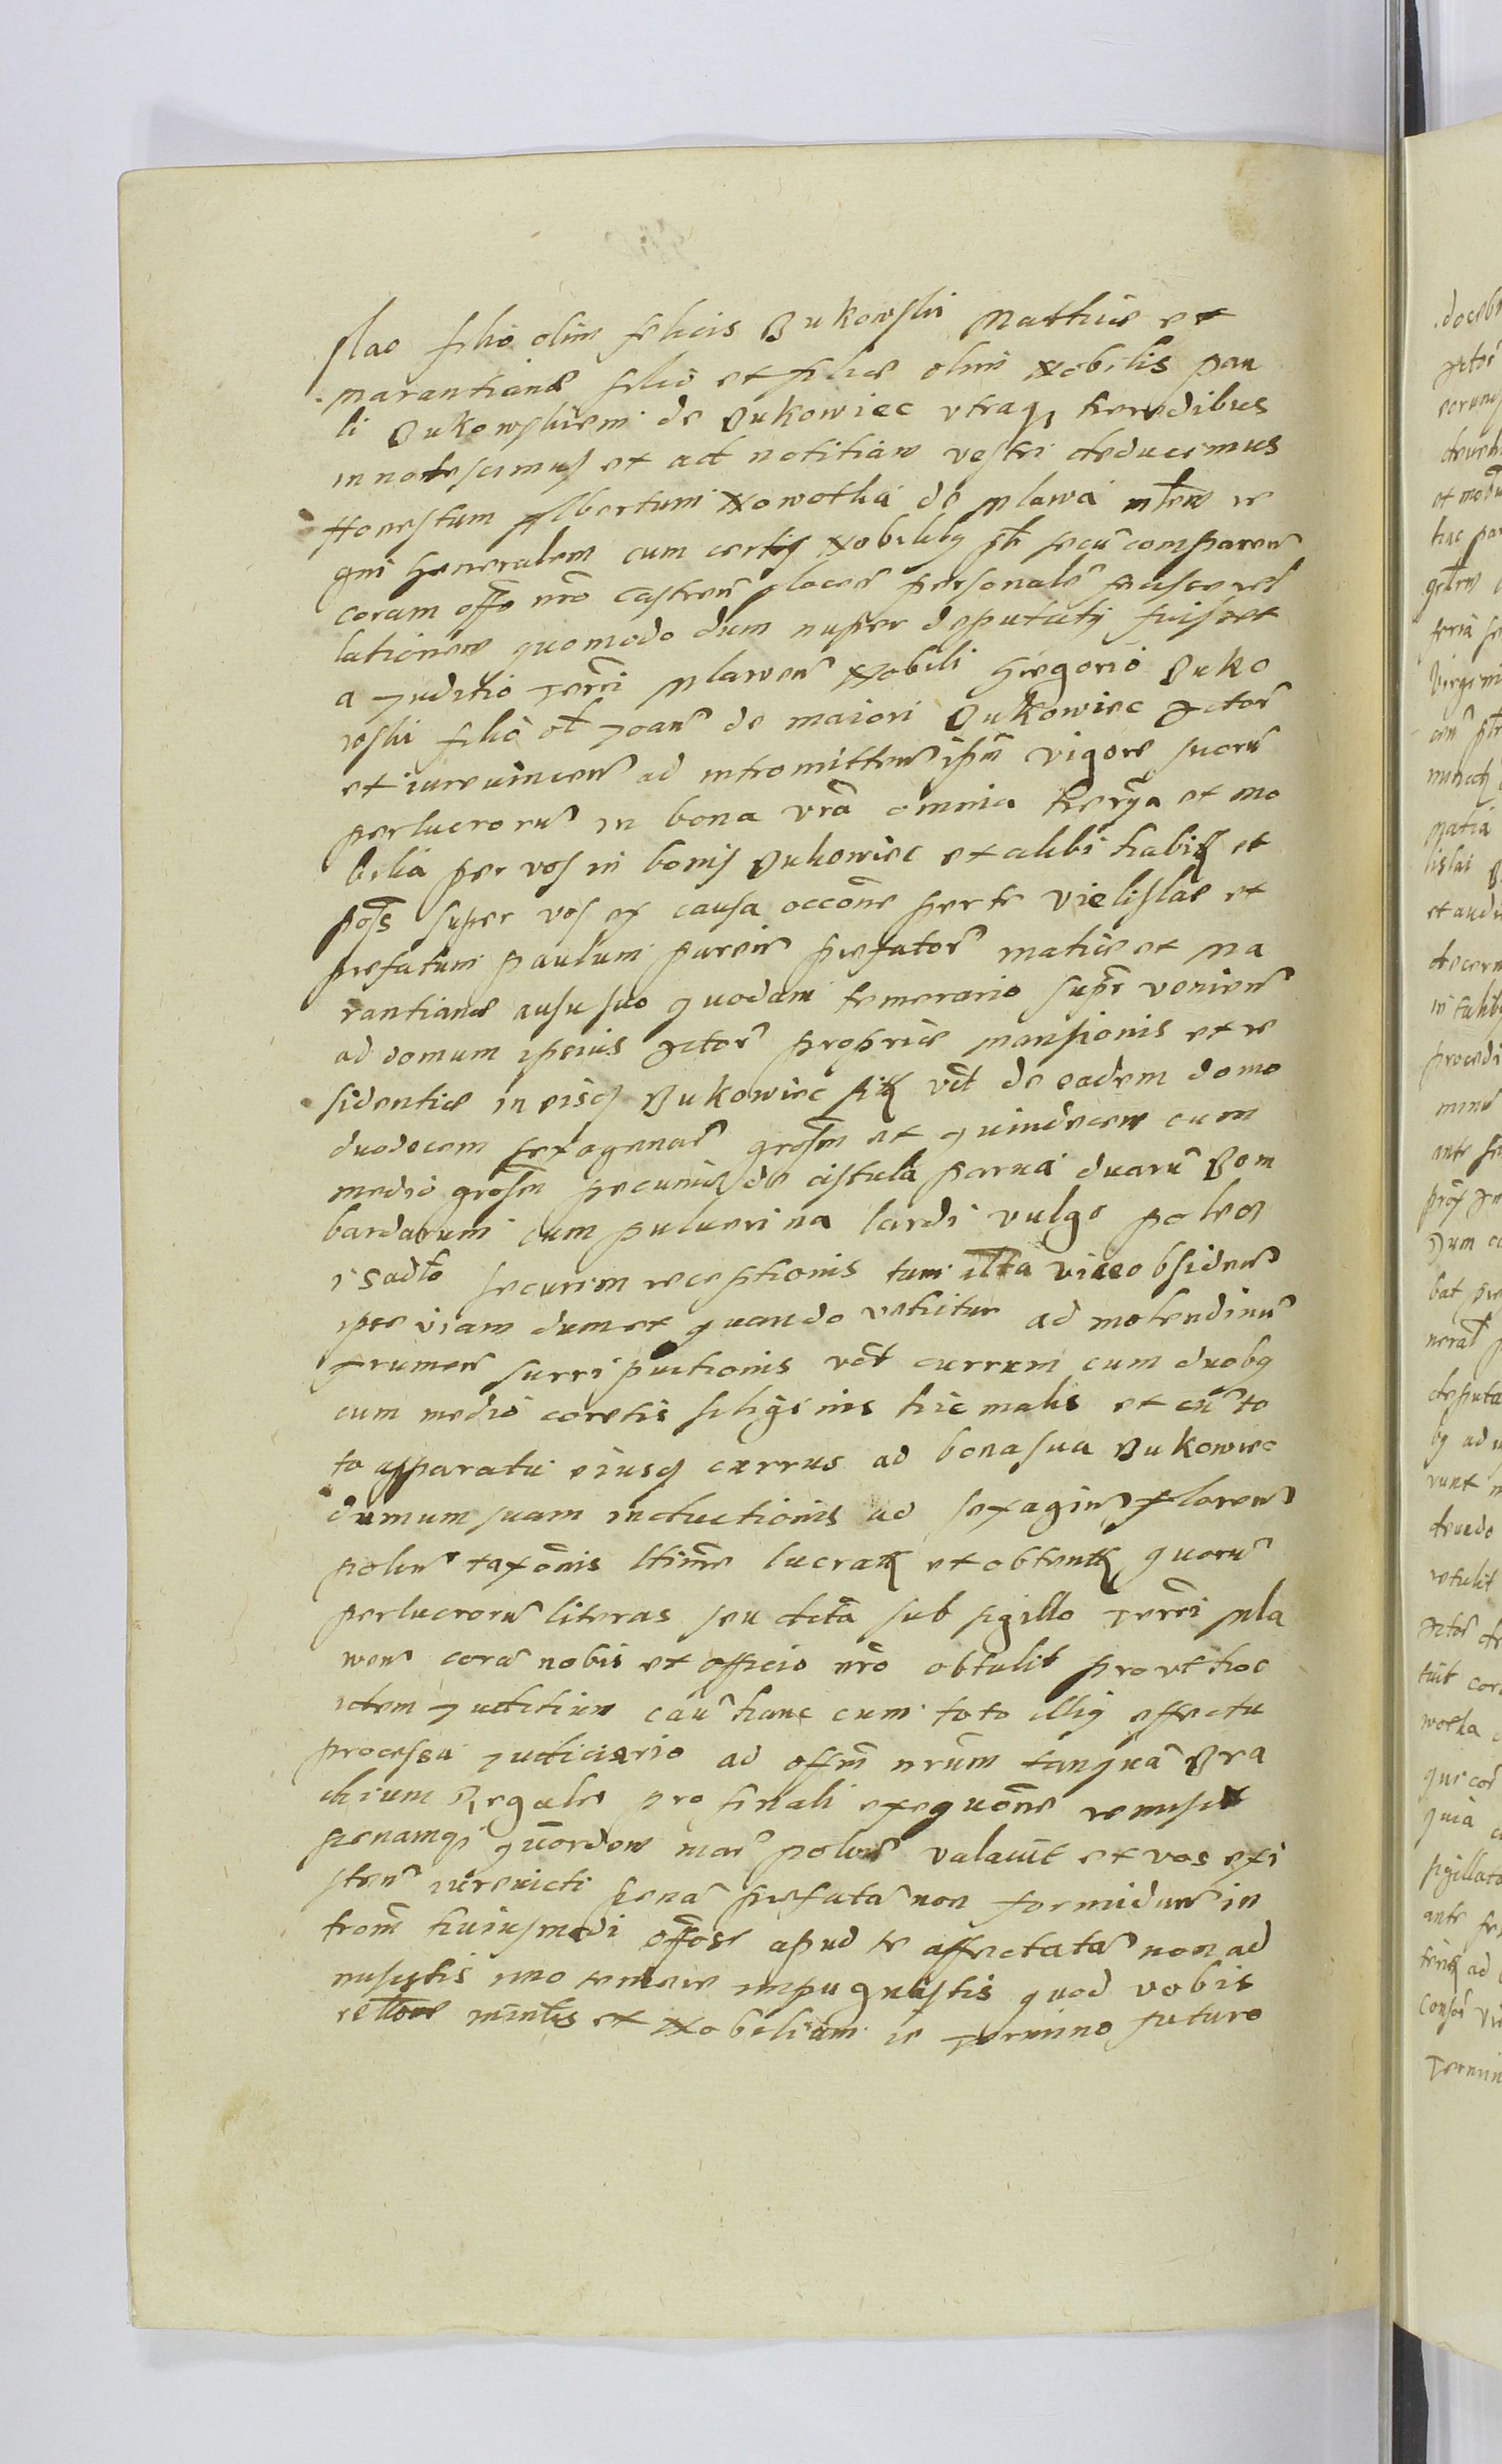 slao filio olim felicis Bukowski Mathiæ et
Marantianæ filio et filiæ olim Nobilis pau
li Bukowskiem de Bukowiec utraqʒ heredibus
innotescimus et ad notitiam vestri deducimus
Honestum Albertum Nowotka de Mlawa mlem re
gni Generalem cum certis Nobilibʒ pt secū comparen̄
coram offo nr̄o Castren̄ placen̄ personalr̄ fecisse rel
lationem quomodo dum nuper deputatʒ fuisset
a Juditio Terr̄i Mlawen̄ Nobili Gregorio Buko
wski filio ol̄ Joan̄ de maiori Bukowiec Actor̄
et iurevincen̄ ad intromitten̄ ipm̄ vigore suor̄
perlucroru̅ in bona vr̄a omnia herr̄ia et mo
bilia per vos in bonis Bukowiec et alibi habit et
poss̄ super vos ex causa occōne per te vielislae et
prefatum paulum paren̄ prefator̄ matiæ et Ma
rantianæ ausu suo quodam temerario supr̄ venien̄
ad domum ipsius Actor̄ propriæ mansionis et re
sidentiæ in eisdʒ Bukowiec sit vc̄t de eadem domo
duodecem sexagenar̄ gross̄m et quindecem cum
medio gross̄m pecuniæ de cistula parua duaru̅ Bom
bardarum cum puluerina lardi vulgo polec
i sadło securim receptionis tum illa vice obsiden̄
ipse viam dum et quando vehitur ad molendinū
frumen̄ surripuctionis vc̄t currum cum duobʒ
cum medio coretis siliginis hiemalis et cū to
to apparatu eiusdʒ currus ad bona sua Bukowiec
dumum suam inductionis ad sexagin̄ floren̄
polon̄ taxōnis ltime lucrat et obtent quoru̅
perlucroru̅ literas seu dcta sub sigillo Terr̄i Mla
wen̄ corā nobis et officio nr̄o obtulit prout hoc
idem Juditium cau̅ hanc cum toto illiʒ effectu
processu Judiciario ad offm̄ nrum tanquā Bra
chium Regale pro finali exequōne remisit
penamqʒ quordem mar̄ polon̄ valauit et vos exi
sten̄ iurevicti penā prefatā non formidan̄ in
trom̄ huiusmodi offose apud te affectatā non ad
misistis imo temere impugnastis quod vobis
rellone mintis et Nobilium ie Termino futuro